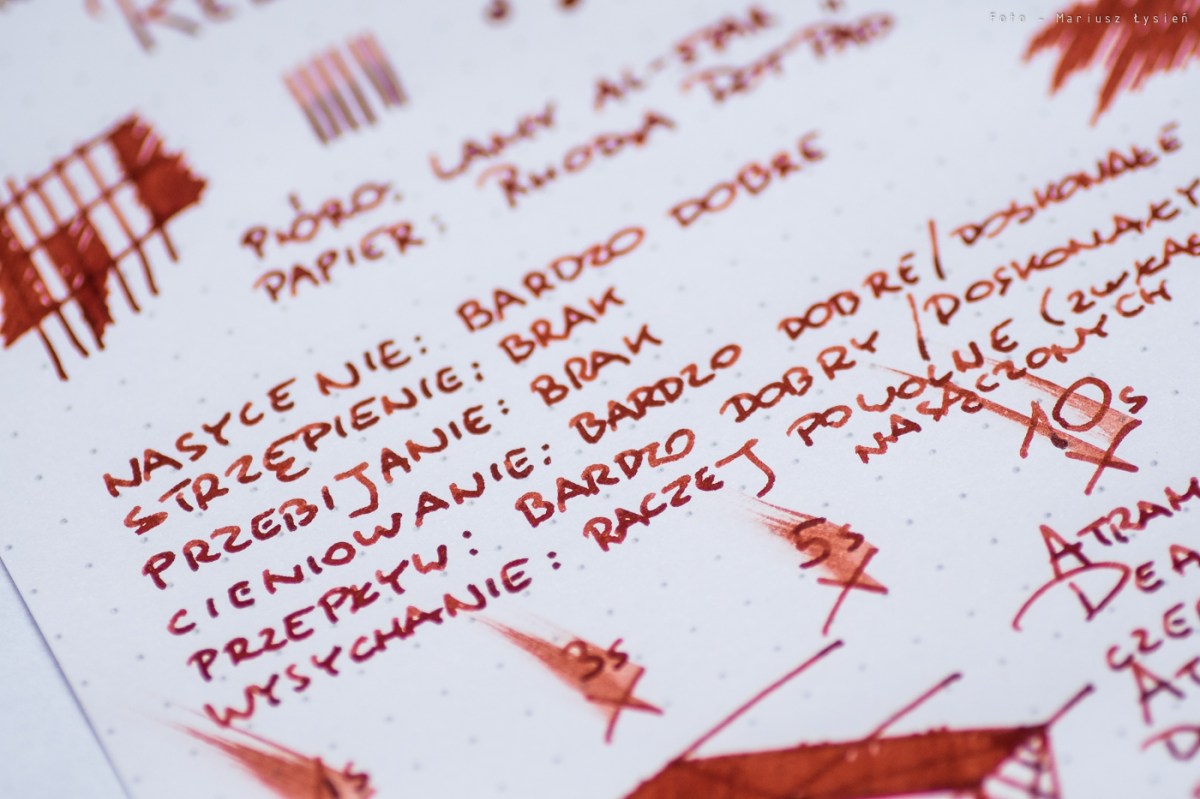 Foto - Mariusz Łysień
PIÓRO: LAMY AL-STAR
PAPIER: RHODIA DOTPAD
NASYCENIE: BARDZO DOBRE
STRZĘPIENIE: BRAK
PRZEBIJANIE: BRAK
CIENIOWANIE: BARDZO DOBRE/DOSKONAŁE
PRZEPŁYW: BARDZO DOBRY/DOSKONAŁY
WYSYCHANIE: RACZEJ POWOLNE (ZWŁAS
NASĄCZONYCH
10s
5s
3s
ATRAM
DEA
CZE
AT